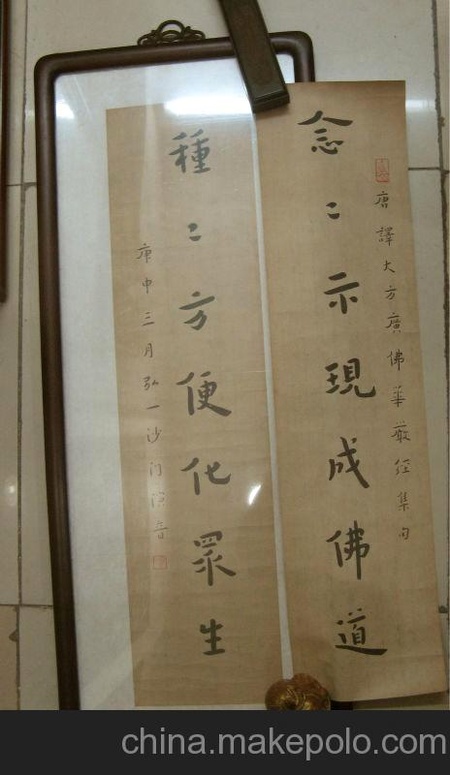 唐譯大方廣佛華嚴經集句
念〻示現成佛道
種〻方便化眾生
庚申三月弘一沙門演音
china.makepolo.com